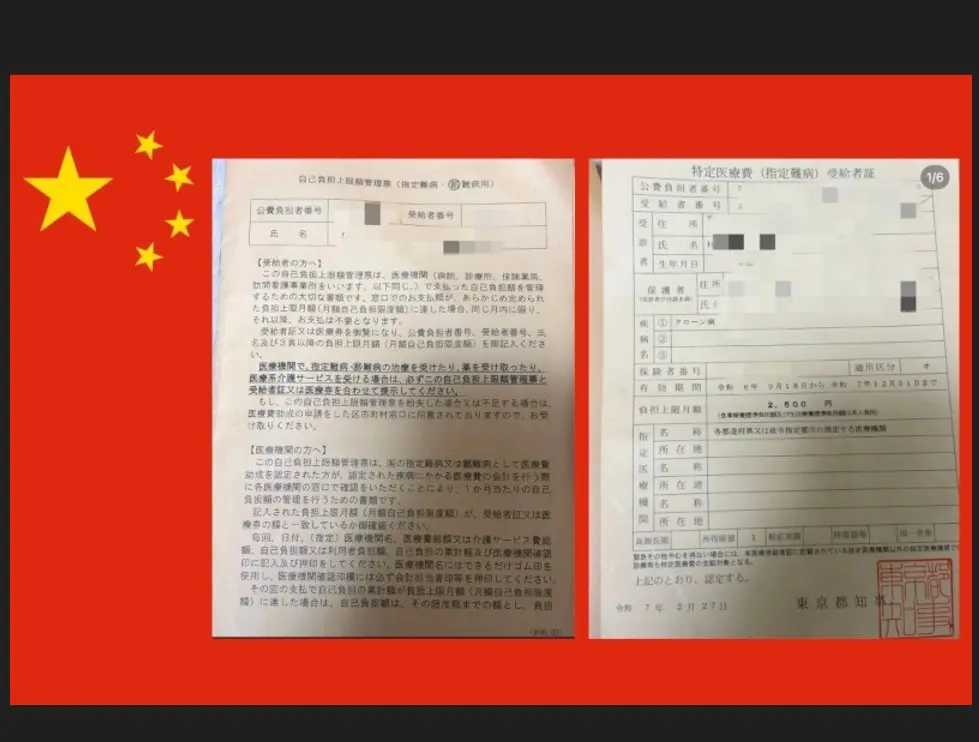 自己負担上限額管理票（指定難病・難病用）
公費負担者番号
受給者番号
氏　名
【受給者の方へ】
この自己負担上限額管理票は、医療機関（病院、診療所、保険薬局、
訪問看護事業所をいいます。以下同じ。）で支払った自己負担額を管理
するための大切な書類です。窓口でのお支払額が、あらかじめ定められ
た負担上限月額（月額自己負担限度額）に達した場合、同じ月内に限り、
それ以降、お支払は不要となります。
受給者証又は医療券を御覧になり、公費負担者番号、受給者番号、氏
名及び3頁以降の負担上限月額（月額自己負担限度額）を御記入くださ
い。
医療機関で、指定難病・難病の治療を受けたり、薬を受け取ったり、
医療系介護サービスを受ける場合は、必ずこの自己負担上限額管理票と
受給者証又は医療券を合わせて提示してください。
もし、この自己負担上限額管理票を紛失した場合又は不足する場合は、
医療費助成の申請をした区市町村窓口に用意されておりますので、お受
け取りください。
【医療機関の方へ】
この自己負担上限額管理票は、国の指定難病又は難病として医療費
助成を認定された方が、認定された疾病にかかる医療費の会計を行う際
に各医療機関の窓口で確認をいただくことにより、1か月当たりの自己
負担額の管理を行うための書類です。
記入された負担上限月額（月額自己負担限度額）が、受給者証又は医
療券の額と一致しているか御確認ください。
毎回、日付、（指定）医療機関名、医療費総額又は介護サービス費総
額、自己負担額又は利用者負担額、自己負担の累計額及び医療機関確認
印に記入及び押印をしてください。医療機関名にはできるだけゴム印を
使用し、医療機関確認印欄には必ず会計担当者印等を押印してください。
その窓の支払で自己負担の累計額が負担上限月額（月額自己負担限度
額）に達した場合は、自己負担額は、その限度額までの額とし、負担
特定医療費（指定難病）受給者証
1/6
公費負担者番号
受給者番号
受 住所
診 氏名
者 生年月日
保護者
住所
氏名
病 ① クローン病
病 ②
名 ③
保険者番号
適用区分
有効期間 令和 6年 9月18日から 令和 7年12月31日まで
負担上限月額 2,500 円
指 名称 各都道府県又は政令指定都市の指定する医療機関
定 所在地
医 名称
療 所在地
機 名称
関 所在地
上記のとおり、認定する。
令和 7年 2月27日
東京都知事